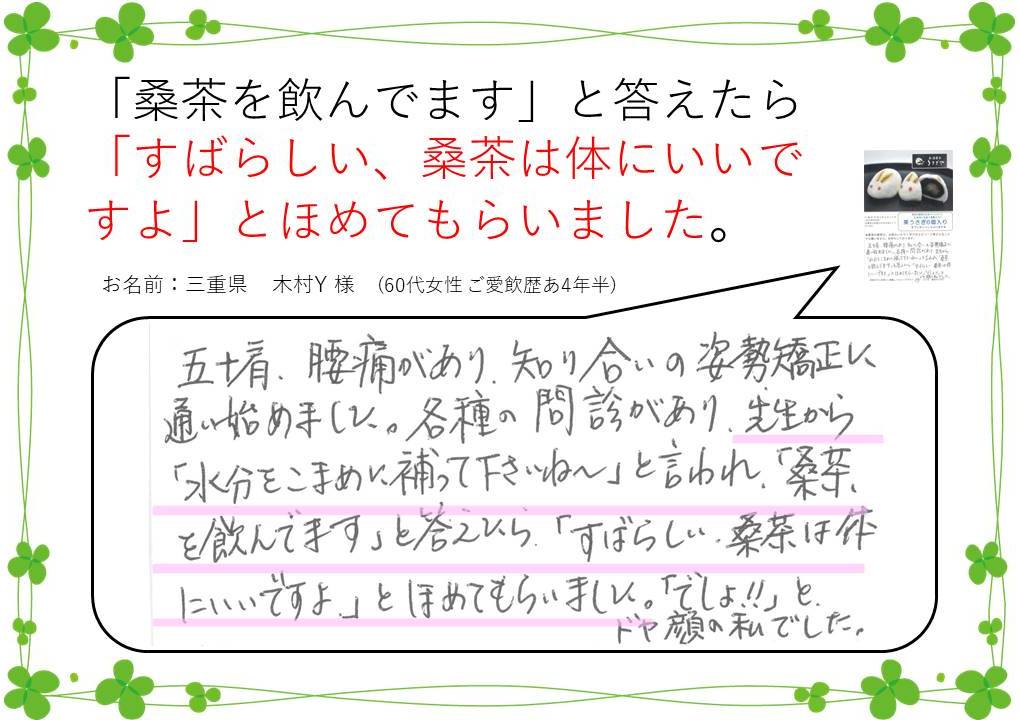 「桑茶を飲んでます」と答えたら
「すばらしい、桑茶は体にいいで
すよ」とほめてもらいました。
お名前：三重県　木村Y 様　(60代女性 ご愛飲歴あ4年半)
五十肩、腰痛があり、知り合いの姿勢矯正に
通い始めました。各種の問診があり、先生から
「水分をこまめに補って下さいね～」と言われ、「桑茶
を飲んでます」と答えたら、「すばらしい、桑茶は体
にいいですよ。」とほめてもらいました。「でしょ!!」と、
ドヤ顔の私でした。